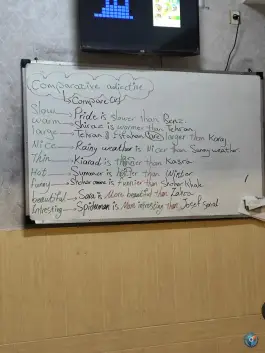 Comparative adjective
↳ Compare (２)
Slow → Pride is slower than Benz.
warm → Shiraz is warmer than Tehran
large → Tehran & Isfahan (are) larger than Karaj
Nice → Rainy weather is Nicer than Sunny weather
Thin → Kiarad is thinner than Kasra
Hot → Summer is hotter than Winter
funny → is funnier than
beautiful → Sara is More beautiful than Zahra
Interesting → Spiderman is More interesting than Josef